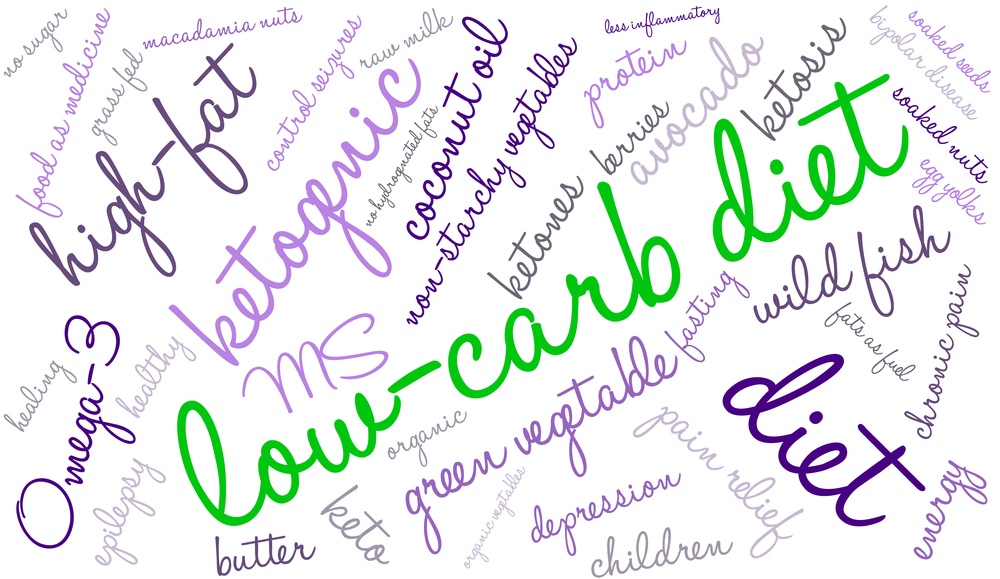 no sugar
macadamia nuts
food as medicine
grass fed
high-fat
control seizures
raw milk
ketogenic
no hydrognated fats
coconut oil
non-starchy vegetables
less inflammatory
protein
berries
avocado
ketosis
soaked seeds
bipolar disease
soaked nuts
egg yolks
ketones
low-carb diet
wild fish
MS
fasting
fats as fuel
chronic pain
Omega-3
healing
healthy
epilepsy
organic
green vegetable
diet
pain relief
organic vegetables
depression
energy
butter
keto
children